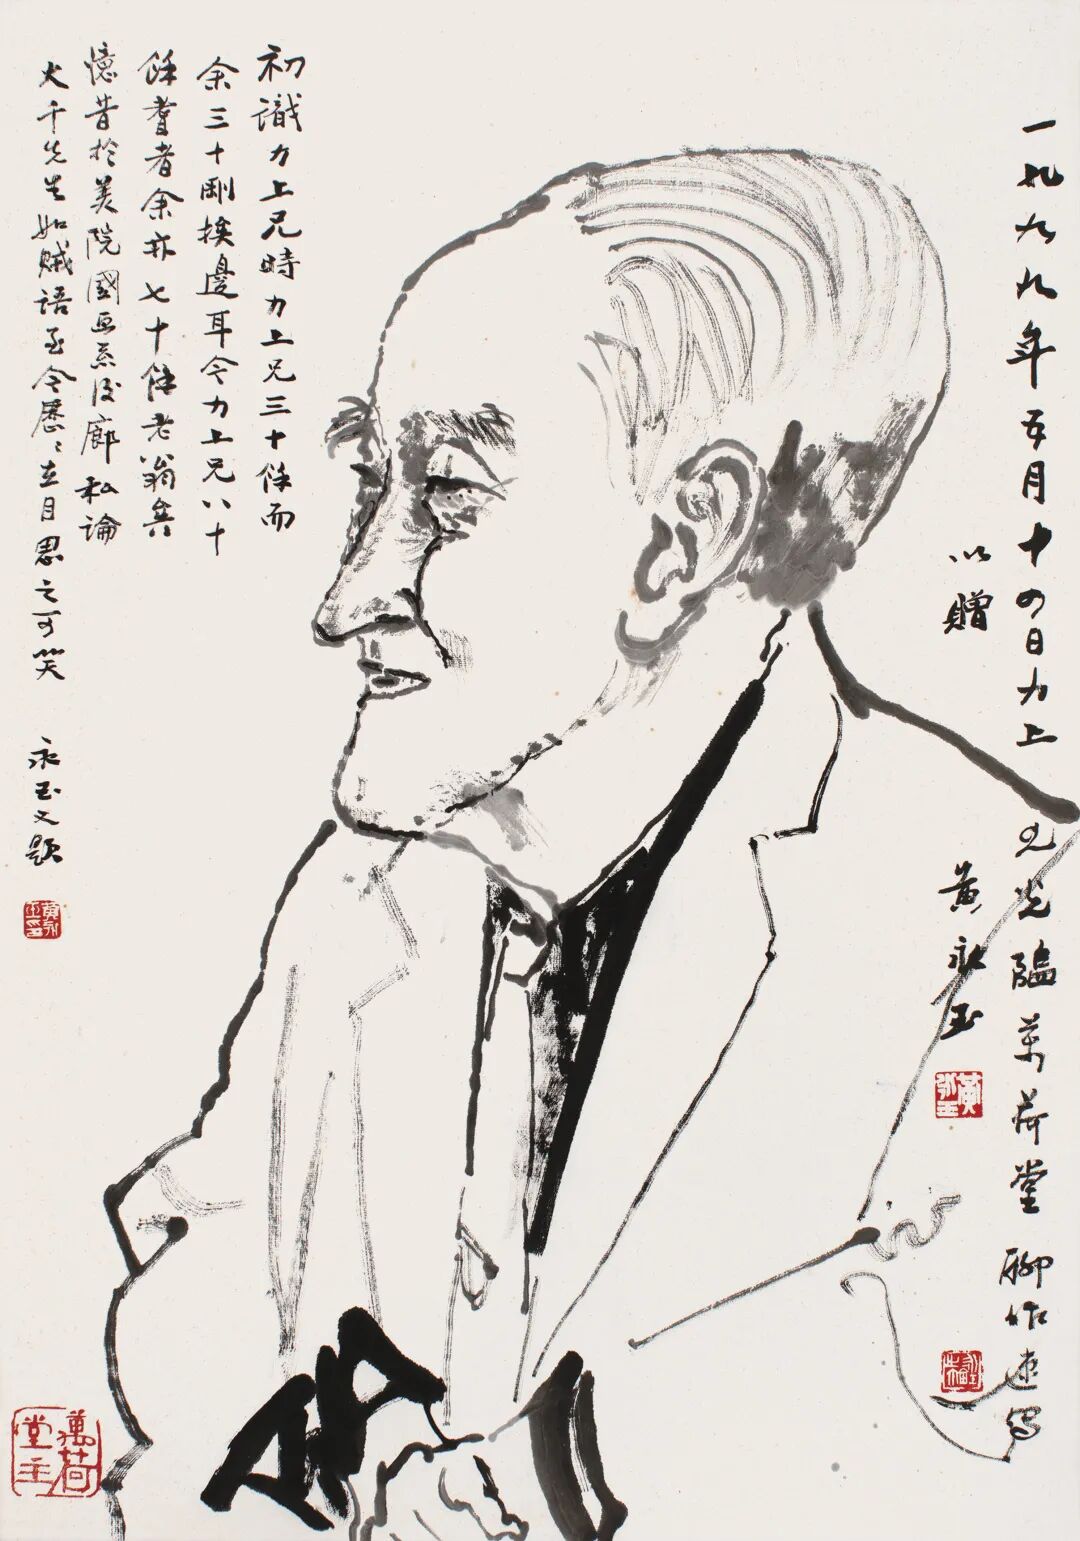 一九九九年五月十四日力上兄光臨萬荷堂 聊作速写
以贈
黄永玉
初識力上兄時力上兄三十餘而
余三十剛挨邊耳今力上兄八十
餘耆者余亦七十餘老翁矣
憶昔於美院國画系後廊私論
大千先生如賊語至今歷歷在目思之可笑
永玉又題
萬荷堂主